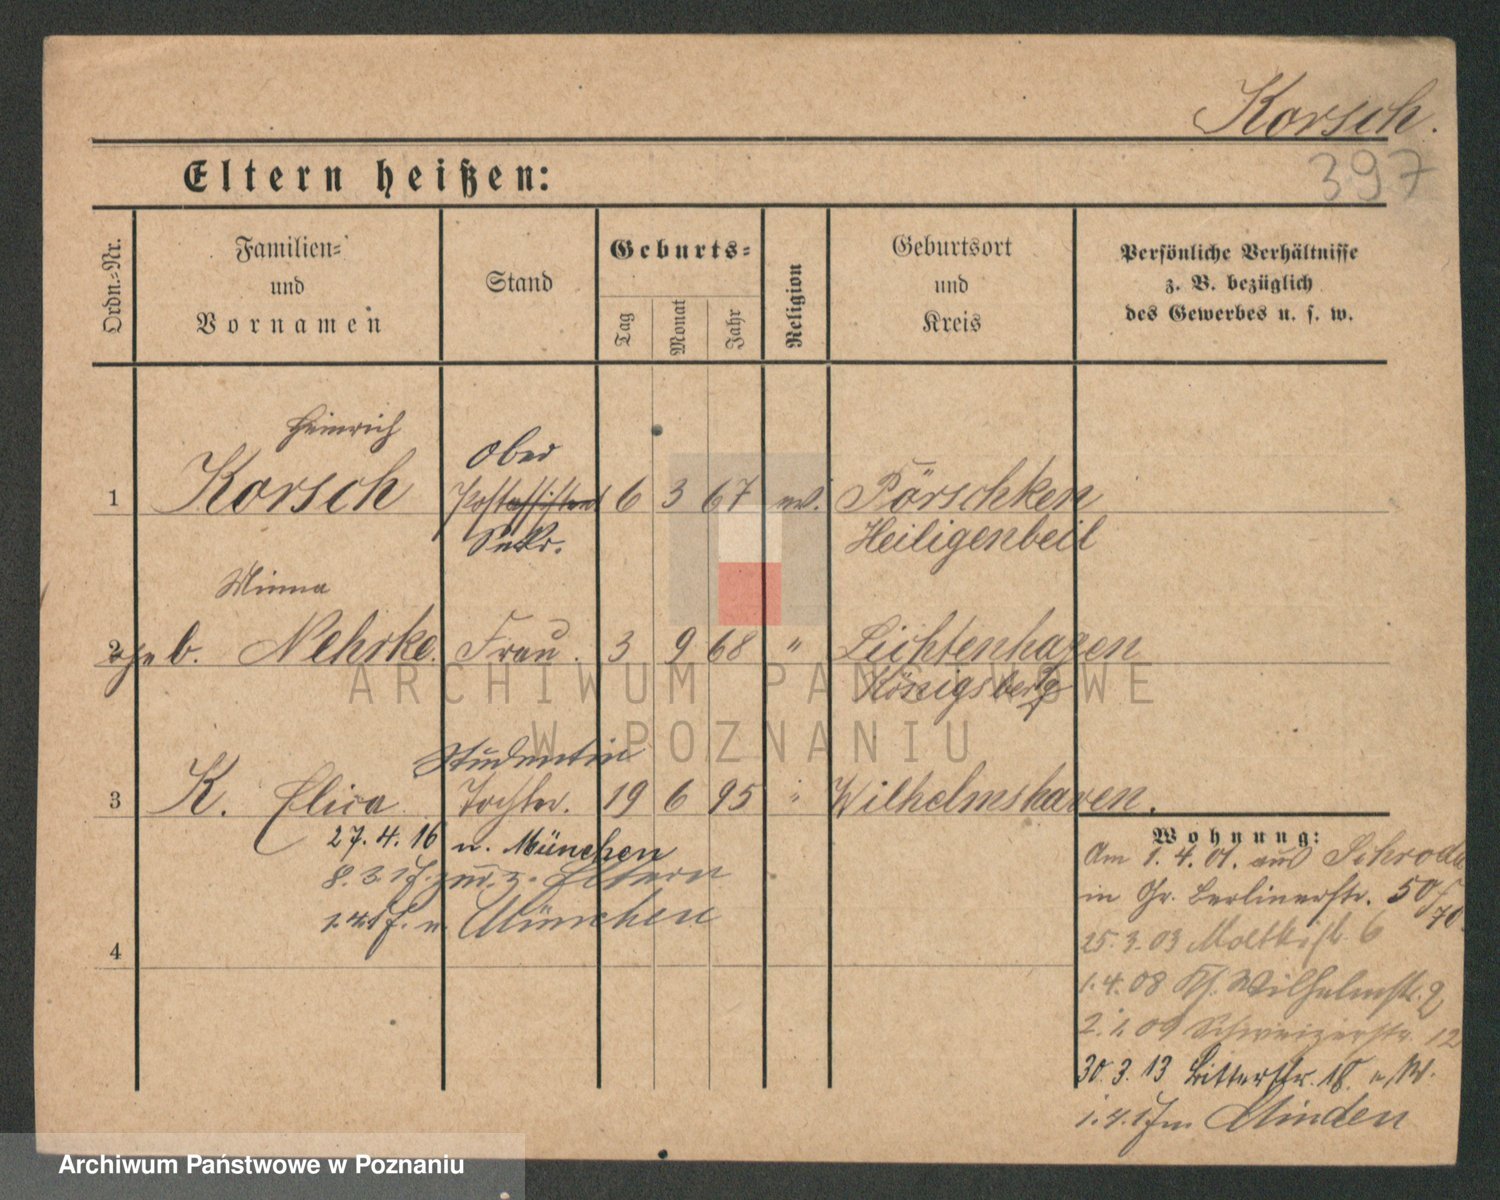 Korsch.
397
Eltern heißen:
Ordn.=Nr.
Familien=
und
Vornamen
Stand
Geburts=
Tag
Monat
Jahr
Religion
Geburtsort
und
Kreis
Persönliche Verhältnisse
z. B. bezüglich
des Gewerbes u. s. w.
Heinrich
Ober
1 Korsch Postassistent 6 3 67 ev. Pörschken
Sekr. Heiligenbeil
Minna
2 geb. Nehrke. Frau. 3 9 68 " Lichtenhagen
Königsberg
Studentin
3 K. Elisa Tochter. 19 6 95 " Wilhelmshaven.
27.4.16 n. München
8.3.17. zur. z. Eltern
1.4.17. n. München
4
Wohnung:
Am 1.4.01. aus Schroda
in Gr. Berlinerstr. 50/
70.
25.3.03 Moltkestr. 6
1.4.08 Wilhelmstr. 2
2.1.09 Schweizerstr. 12
30.3.13 Ritterstr. 18.
1.4.17 n. Minden
ARCHIWUM PAŃSTWOWE
W POZNANIU
Archiwum Państwowe w Poznaniu